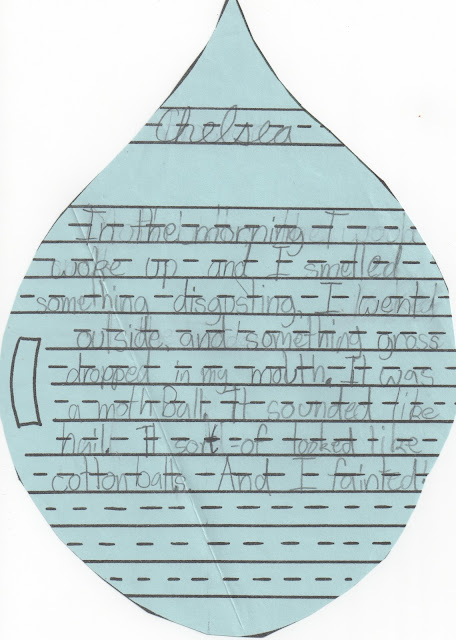 Chelsea
In the morning I
woke up and I smelled
something disgosting. I wentd
outside and something gross
dropped in my mouth. It was
a moth ball. It sounded like
hail. It sort of looked like
cottonballs. And I fainted!